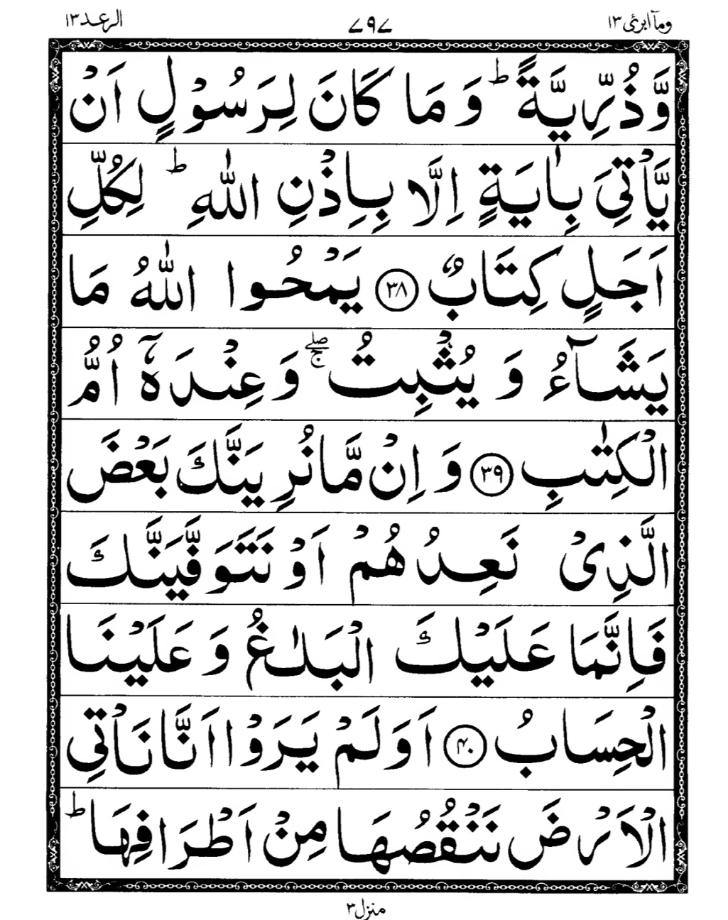 الرعد١٣ ٧٩٧ ومآ ابرئ١٣
وَّذُرِّيَّةً ؕ وَ مَا كَانَ لِرَسُوْلٍ اَنْ
يَّاْتِيَ بِاٰيَةٍ اِلَّا بِاِذْنِ اللّٰهِ ؕ لِكُلِّ
اَجَلٍ كِتَابٌ ﴿۳۸﴾ يَمْحُوا اللّٰهُ مَا
يَشَآءُ وَ يُثْبِتُ ۚۖ وَ عِنْدَهٗۤ اُمُّ
الْكِتٰبِ ﴿۳۹﴾ وَ اِنْ مَّا نُرِيَنَّكَ بَعْضَ
الَّذِيْ نَعِدُهُمْ اَوْ نَتَوَفَّيَنَّكَ
فَاِنَّمَا عَلَيْكَ الْبَلٰغُ وَ عَلَيْنَا
الْحِسَابُ ﴿۴۰﴾ اَوَلَمْ يَرَوْا اَنَّا نَاْتِي
الْاَرْضَ نَنْقُصُهَا مِنْ اَطْرَافِهَا ؕ
منزل٣